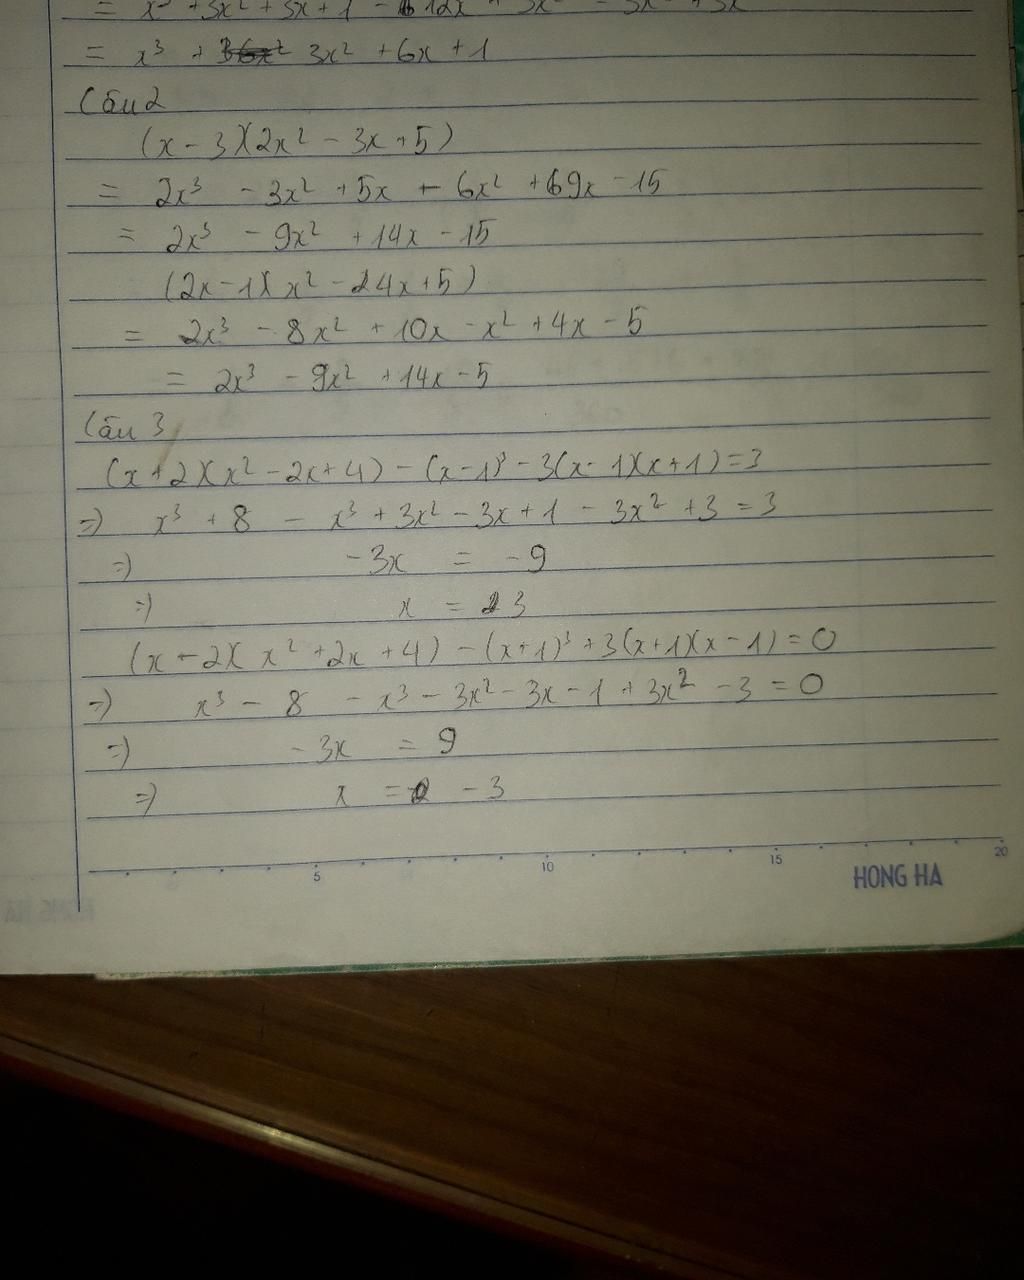 = x³ + 3x² + 3x + 1 - 12x
= x³ + 3x² + 6x + 1
Câu 2
(x - 3)(2x² - 3x + 5)
= 2x³ - 3x² + 5x - 6x² + 9x - 15
= 2x³ - 9x² + 14x - 15
(2x - 1)(x² - 4x + 5)
= 2x³ - 8x² + 10x - x² + 4x - 5
= 2x³ - 9x² + 14x - 5
Câu 3
(x + 2)(x² - 2x + 4) - (x - 1)³ - 3(x - 1)(x + 1) = 3
=) x³ + 8 - x³ + 3x² - 3x + 1 - 3x² + 3 = 3
=) -3x = -9
=) x = 3
(x - 2)(x² + 2x + 4) - (x + 1)³ + 3(x + 1)(x - 1) = 0
=) x³ - 8 - x³ - 3x² - 3x - 1 + 3x² - 3 = 0
=) -3x = 9
=) x = -3
5 10 15 20
HONG HA